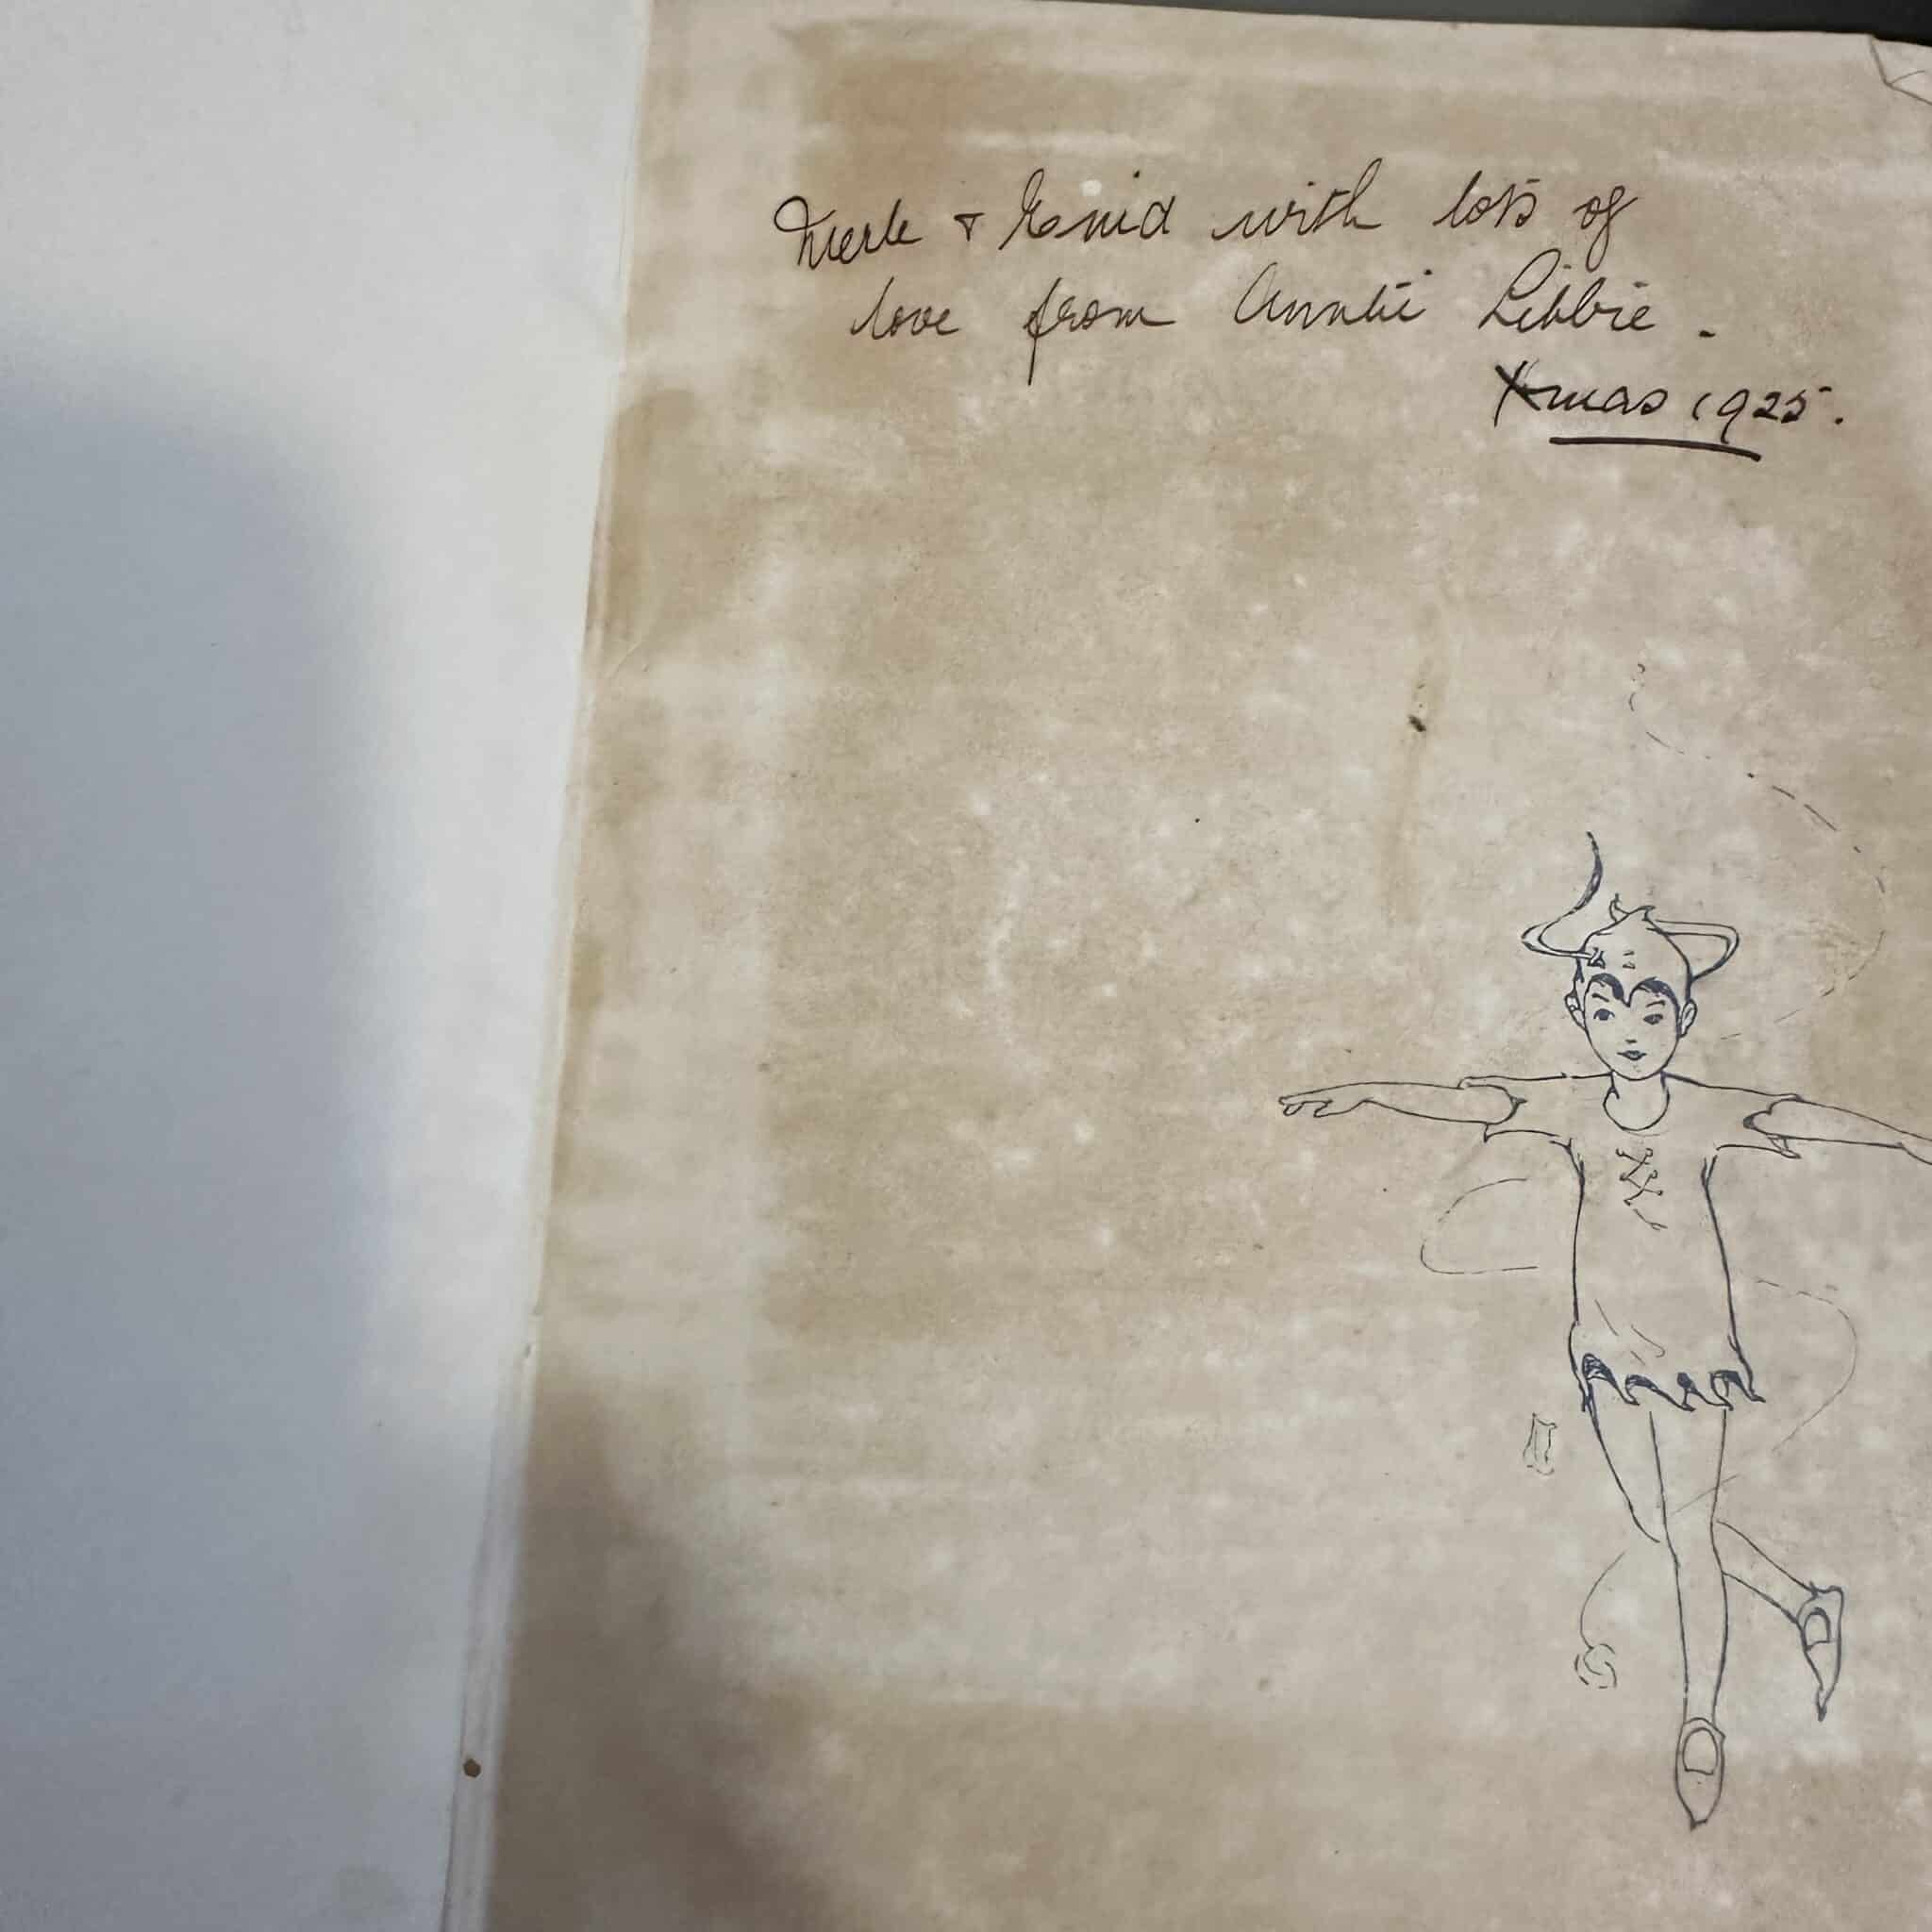 Merle & Enid with lots of
love from Auntie Libbie.
Xmas 1925.